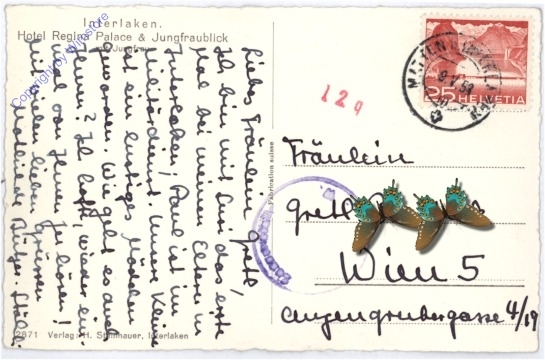 Interlaken.
Hotel Regina Palace & Jungfraublick
mit Jungfrau
Copyright by
Liebes Fräulein Gretl,
Ich bin mit Susi das erste
Mal bei meinen Eltern in
Interlaken, Paul ist im
Militärdienst. Unsere Kleine
ist ein lustiges Mädchen
geworden. Wie geht es auch
Ihnen? Ich hoffe, wieder ein-
mal von Ihnen zu hören!
Mit vielen lieben Grüssen
2871 Verlag: H. Steinhauer, Interlaken
Fabrication suisse
12a
25 HELVETIA
Fräulein
Gretl
Wien 5
Angengrubergasse 4/19